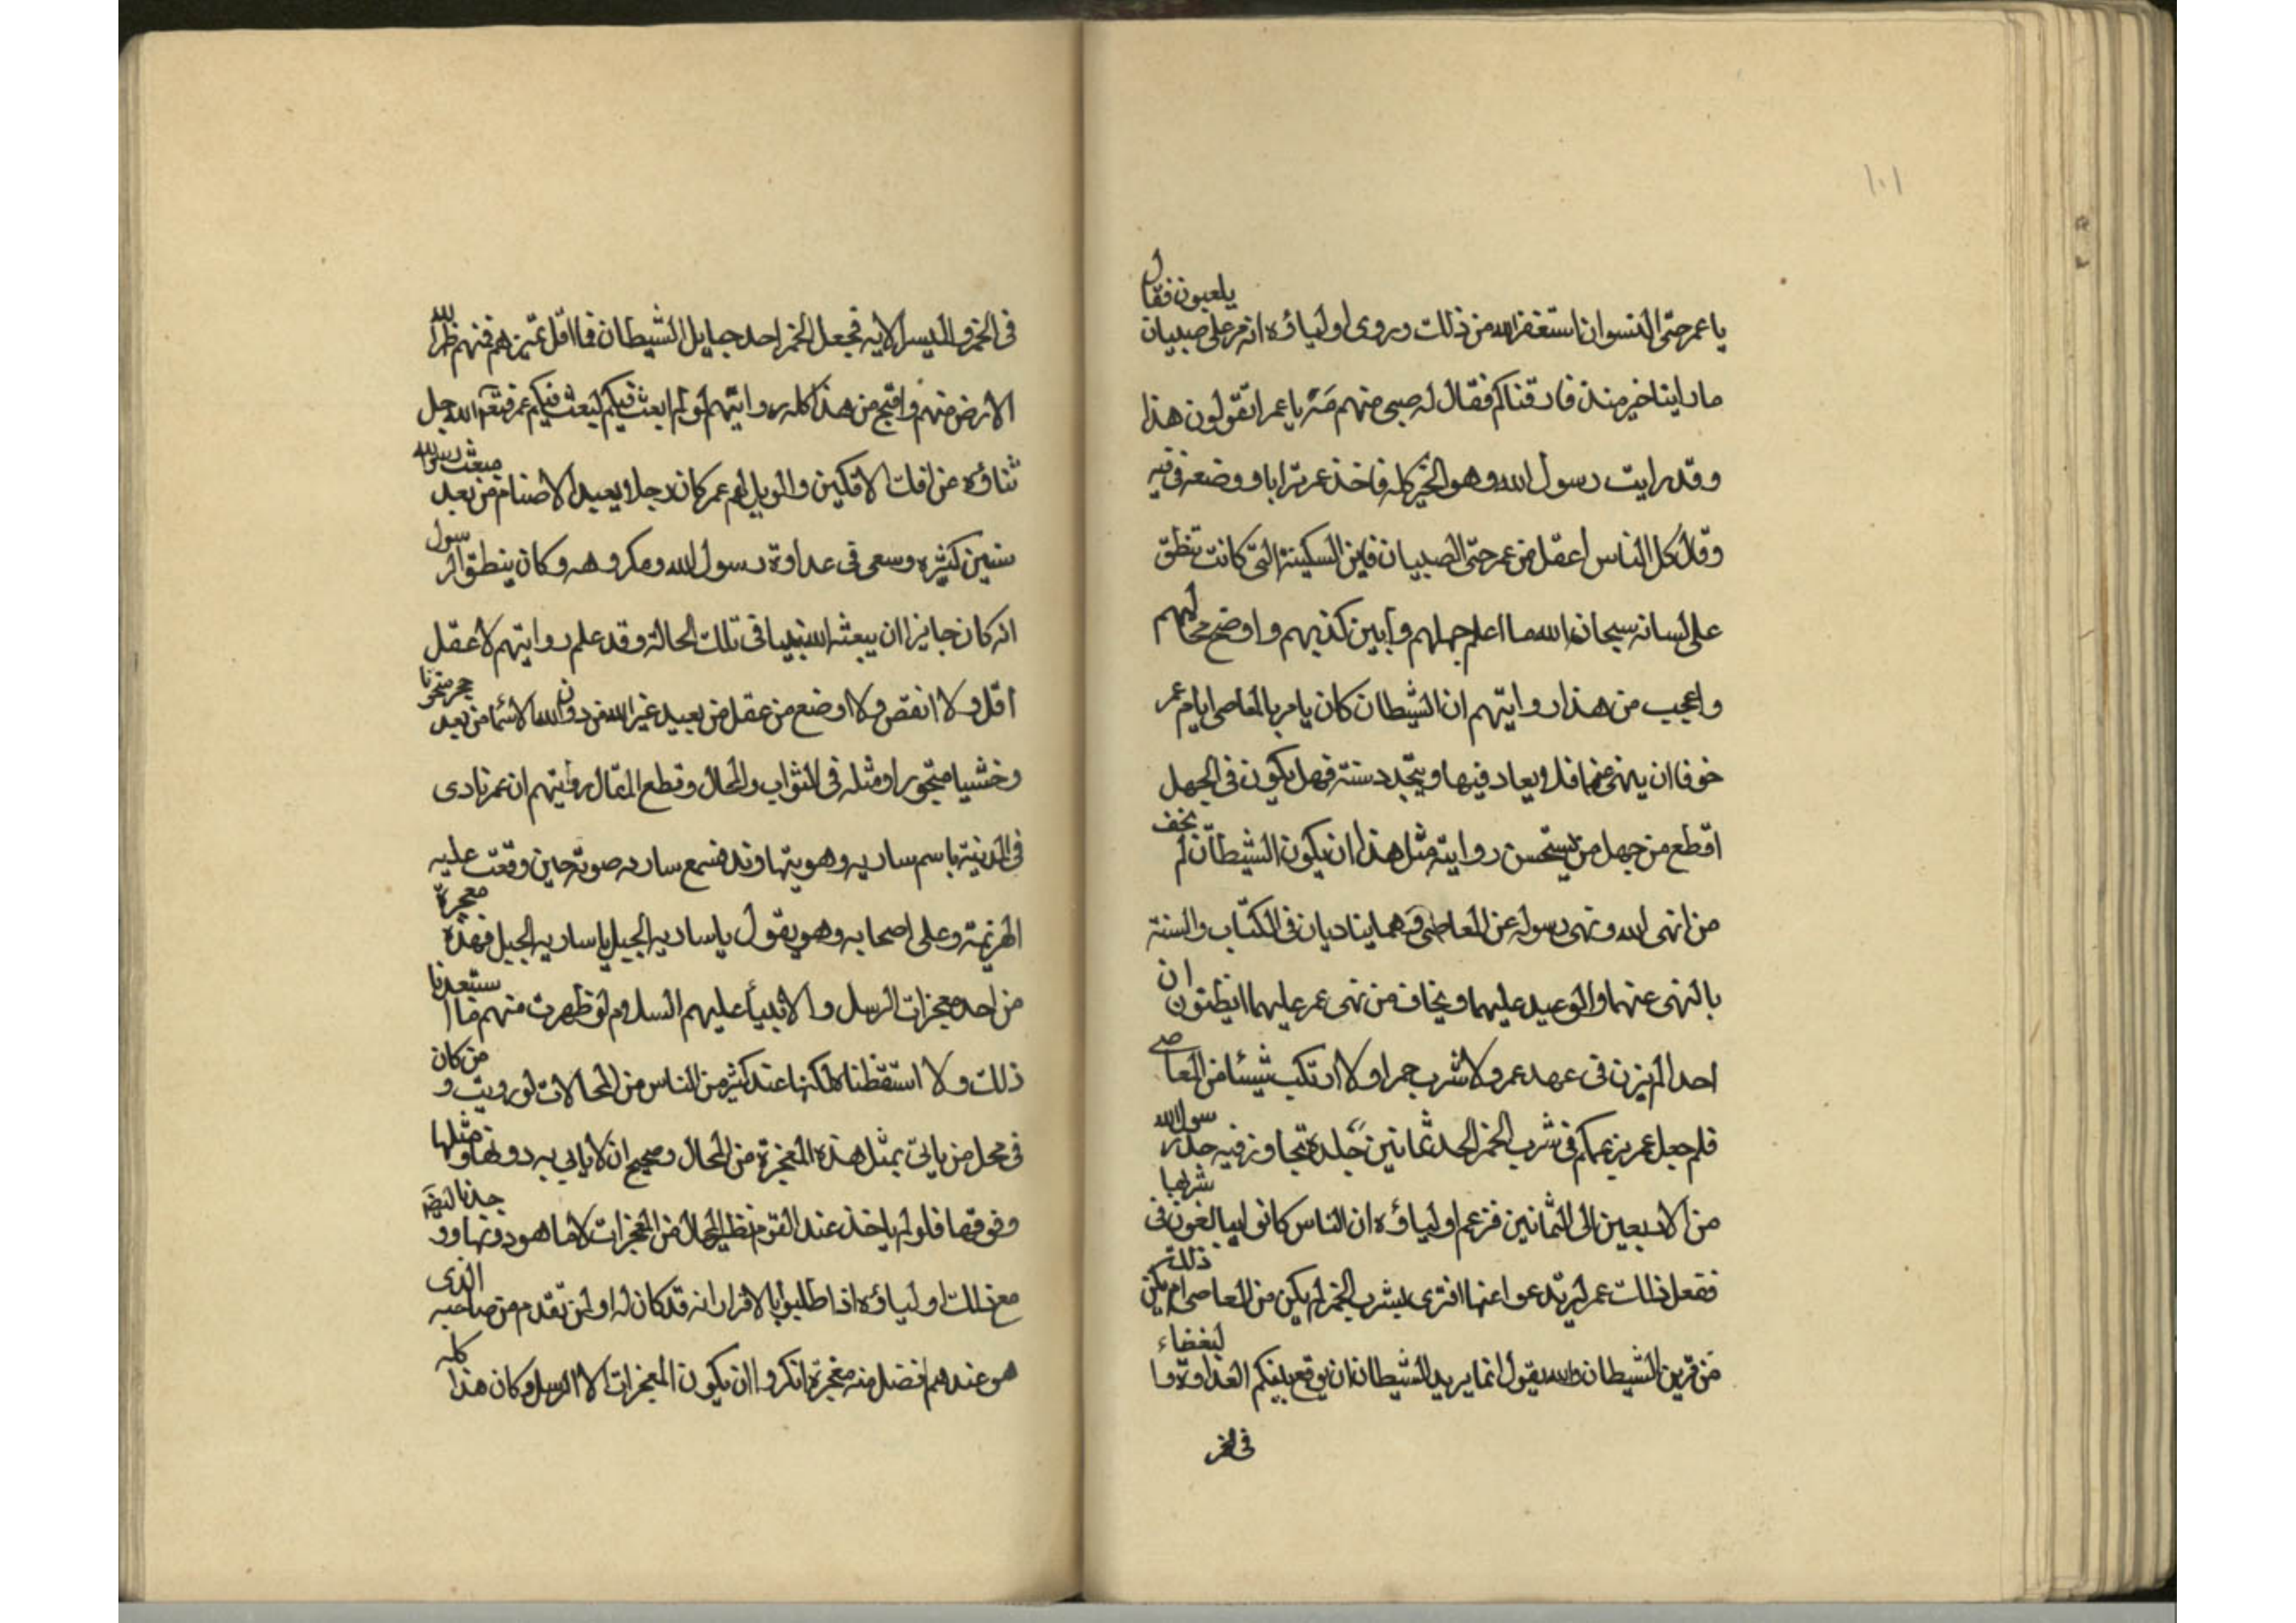 ١٠١
يا عمر حتى النسوان استغفر الله من ذلك وروى اولياؤه انه مر على صبيان يلعبون فقال
ما راينا خير منذ فارقناكم فقال له صبي منهم مه يا عمر اتقولون هذا
وقد رايت رسول الله وهو الخير كله فاخذ عمر ترابا ووضعه في فيه
وقال كل الناس اعقل من عمر حتى الصبيان فاين السكينة التي كانت تنطق
على لسانه سبحان الله ما اعلم جهلهم وابين كذبهم واوضح محالهم
واعجب من هذا روايتهم ان الشيطان كان يامر بالمعاصي ايام عمر
خوفا ان ينهى عنها فلا يعاد فيها ويتخذ سنة فهل يكون في الجهل
اقطع من جهل من يستحسن رواية مثل هذا ان يكون الشيطان لم يخف
من انهى الله ونهى رسوله عن المعاصي وهما يناديان في الكتاب والسنة
بالنهي عنهما والوعيد عليهما ويخاف من نهى عمر عليهما ايظنون ان
احدا لم يزن في عهد عمر ولا شرب خمرا ولا ارتكب شيئا من المعاصي
فلم جعل عمر بزعمكم في شرب الخمر الحد ثمانين جلدة تجاوز فيه حد رسول الله
من الاربعين الى الثمانين فزعم اولياؤه ان الناس كانوا يبالغون في شربها
ففعل ذلك عمر ليرتدعوا عنها افترى شرب الخمر لم يكن من المعاصي ام لم يكن ذلك
من تزين الشيطان والله يقول انما يريد الشيطان ان يوقع بينكم العداوة والبغضاء
في الخمر
في الخمر والميسر الاية فجعل الخمر احد حبايل الشيطان فما اقل تميزهم فهم
الارض منهم واقبح من هذا كله روايتهم لو لم ابعث فيكم لبعث فيكم عمر فتعمد الله جل
ثناؤه عن افك الافكين والويل لهم عمر كان رجلا يعبد الاصنام من بعد مبعث رسول الله
سنين كثيرة وسعى في عداوة رسول الله ومكروهه وكان ينطق
انه كان جايزا ان يبعثه الله نبيا في تلك الحالة وقد علم روايتهم لا عقل
اقل ولا انقص ولا اوضع من عقل من يعبد غير الله من دون الله لا سيما من يعبد حجر منحوتا
وخشبا منجورا ومثله في الثواب والمحال وقطع المقال روايتهم ان عمر نادى
في المدينة باسم سارية وهو بنهاوند فسمع سارية صوته حين وقعت عليه
الهزيمة وعلى اصحابه وهو يقول يا سارية الجبل يا سارية الجبل فهذه معجزة
من احد معجزات الرسل والانبياء عليهم السلام لو ظهرت منهم ما استبعدنا
ذلك ولا استفظناه لكنها عند كثير من الناس من المحالات لو رويت ومن كان
في محل من ياتي بمثل هذه المعجزة من المحال وصحيح ان لا ياتي به دونها ومثلها
وفوقها فلو لم ياخذ عند القوم نظير المحال من المعجزات لا ما هو دونها و
مع ذلك اولياؤه اذا طلبوا بالاقرار انه قد كان له اولمن تقدم من صاحبه الذي
هو عندهم افضل منه معجزة انكروا ان يكون المعجزات الا الرسل وكان هذا كله